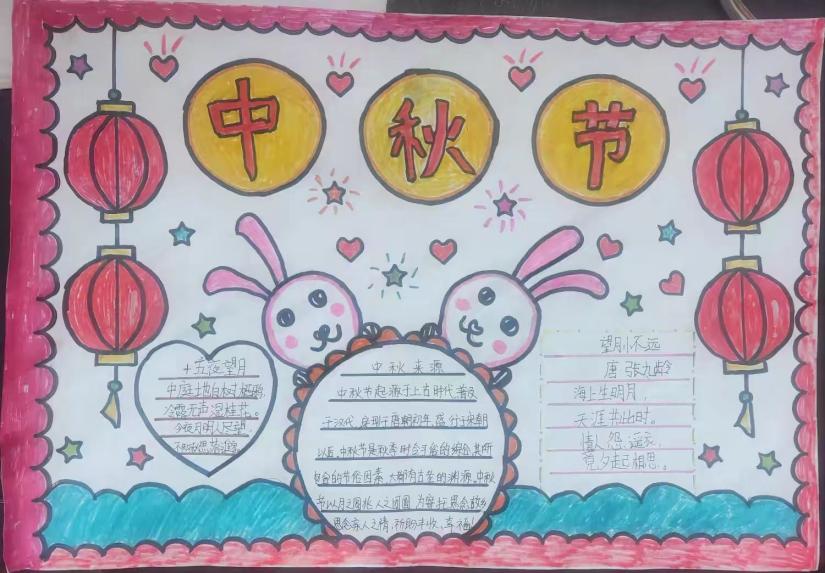 中秋节
十五夜望月
中庭地白树栖鸦,
冷露无声湿桂花。
今夜月明人尽望
不知秋思落谁家
中秋来源
中秋节起源于上古时代,普及
于汉代,定型于唐朝初年,盛行于宋朝
以后,中秋节是秋季时令习俗的综合,其所
包含的节俗因素,大都有古老的渊源,中秋
节以月之圆兆人之团圆,为寄托思念故乡
思念亲人之情,祈盼丰收、幸福
望月怀远
唐 张九龄
海上生明月,
天涯共此时。
情人怨遥夜,
竟夕起相思。